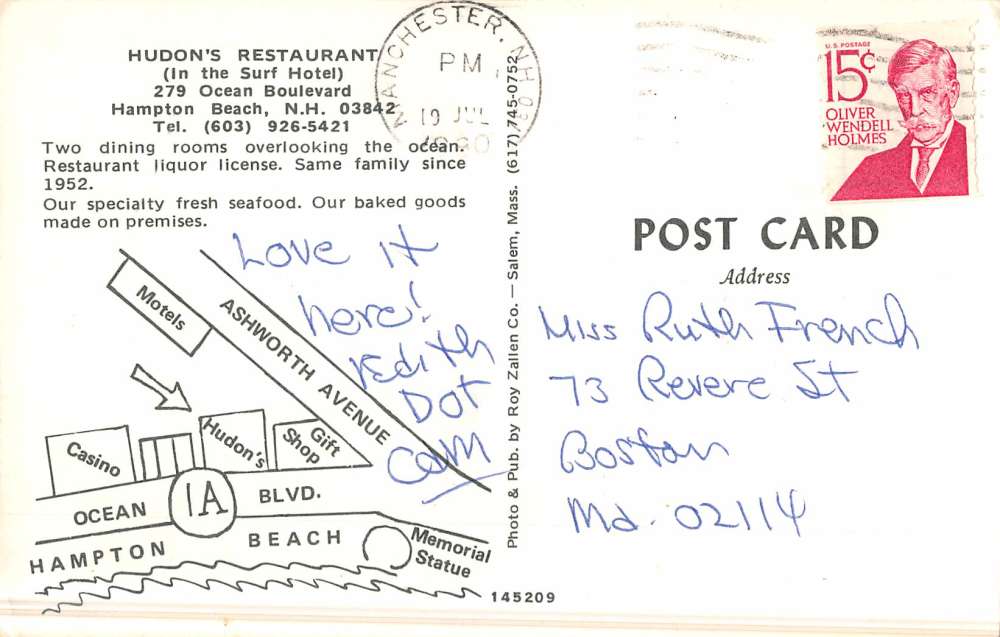 HUDON'S RESTAURANT
(In the Surf Hotel)
279 Ocean Boulevard
Hampton Beach, N.H. 03842
Tel. (603) 926-5421
Two dining rooms overlooking the ocean.
Restaurant liquor license. Same family since
1952.
Our specialty fresh seafood. Our baked goods
made on premises.
MANCHESTER, NH
PM
19 JUL
1980
U.S. POSTAGE
15¢
OLIVER
WENDELL
HOLMES
Love it
here!
Edith
Dot
Motels
ASHWORTH AVENUE
Casino
Hudon's
Gift
Shop
OCEAN
1A
BLVD.
HAMPTON
BEACH
Memorial
Statue
145209
Photo & Pub. by Roy Zallen Co. — Salem, Mass. (617) 745-0752
POST CARD
Address
Miss Ruth French
73 Revere St
Boston
Md. 02114